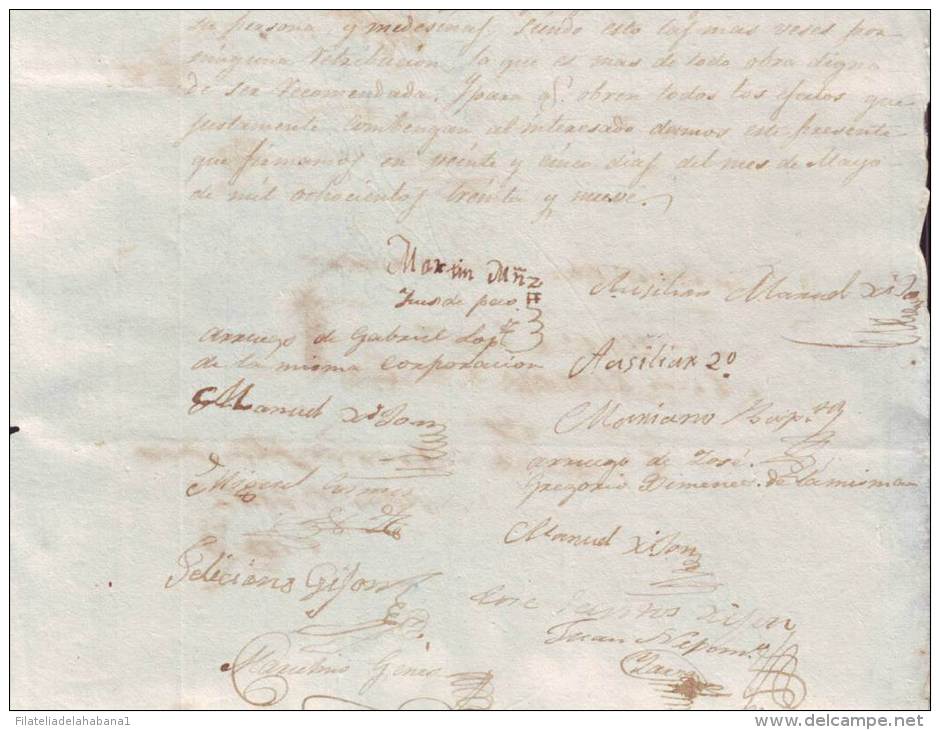 su persona, y medesinas, siendo esto las mas veses por
ninguna Retribucion, la que es mas de todo obra digna
de ser Recomendada. Y para qe. obren todos los efectos que
justamente combengan al interesado damos este presente
que firmamos en veinte y cinco dias del mes de Mayo
de mil ochocientos treinta y nueve.
Martin Mñz
Jues de paz
Ausiliar Manuel
arruego de Gabriel Lop
de la misma corporacion
Ausiliar 2o.
Manuel
Mariano
arruego de José
Gregorio Dimenes. de la misma
Miguel
Manuel Xijon
Feliciano Gijon
Juan Nepom.
Marselino Genes
Filateliadelahabana1
www.delcampe.net